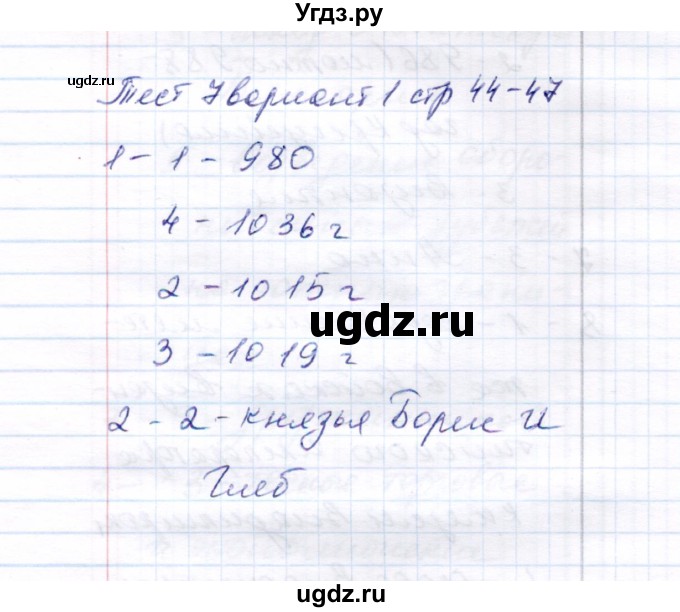 Угдз.ру
ugdz.ru
Тест 7 вариант 1 стр 44-47
1 - 1 - 980
4 - 1036 г
2 - 1015 г
ugdz.ru
3 - 1019 г
2 - 2 - князья Борис и
Глеб
ugdz.ru